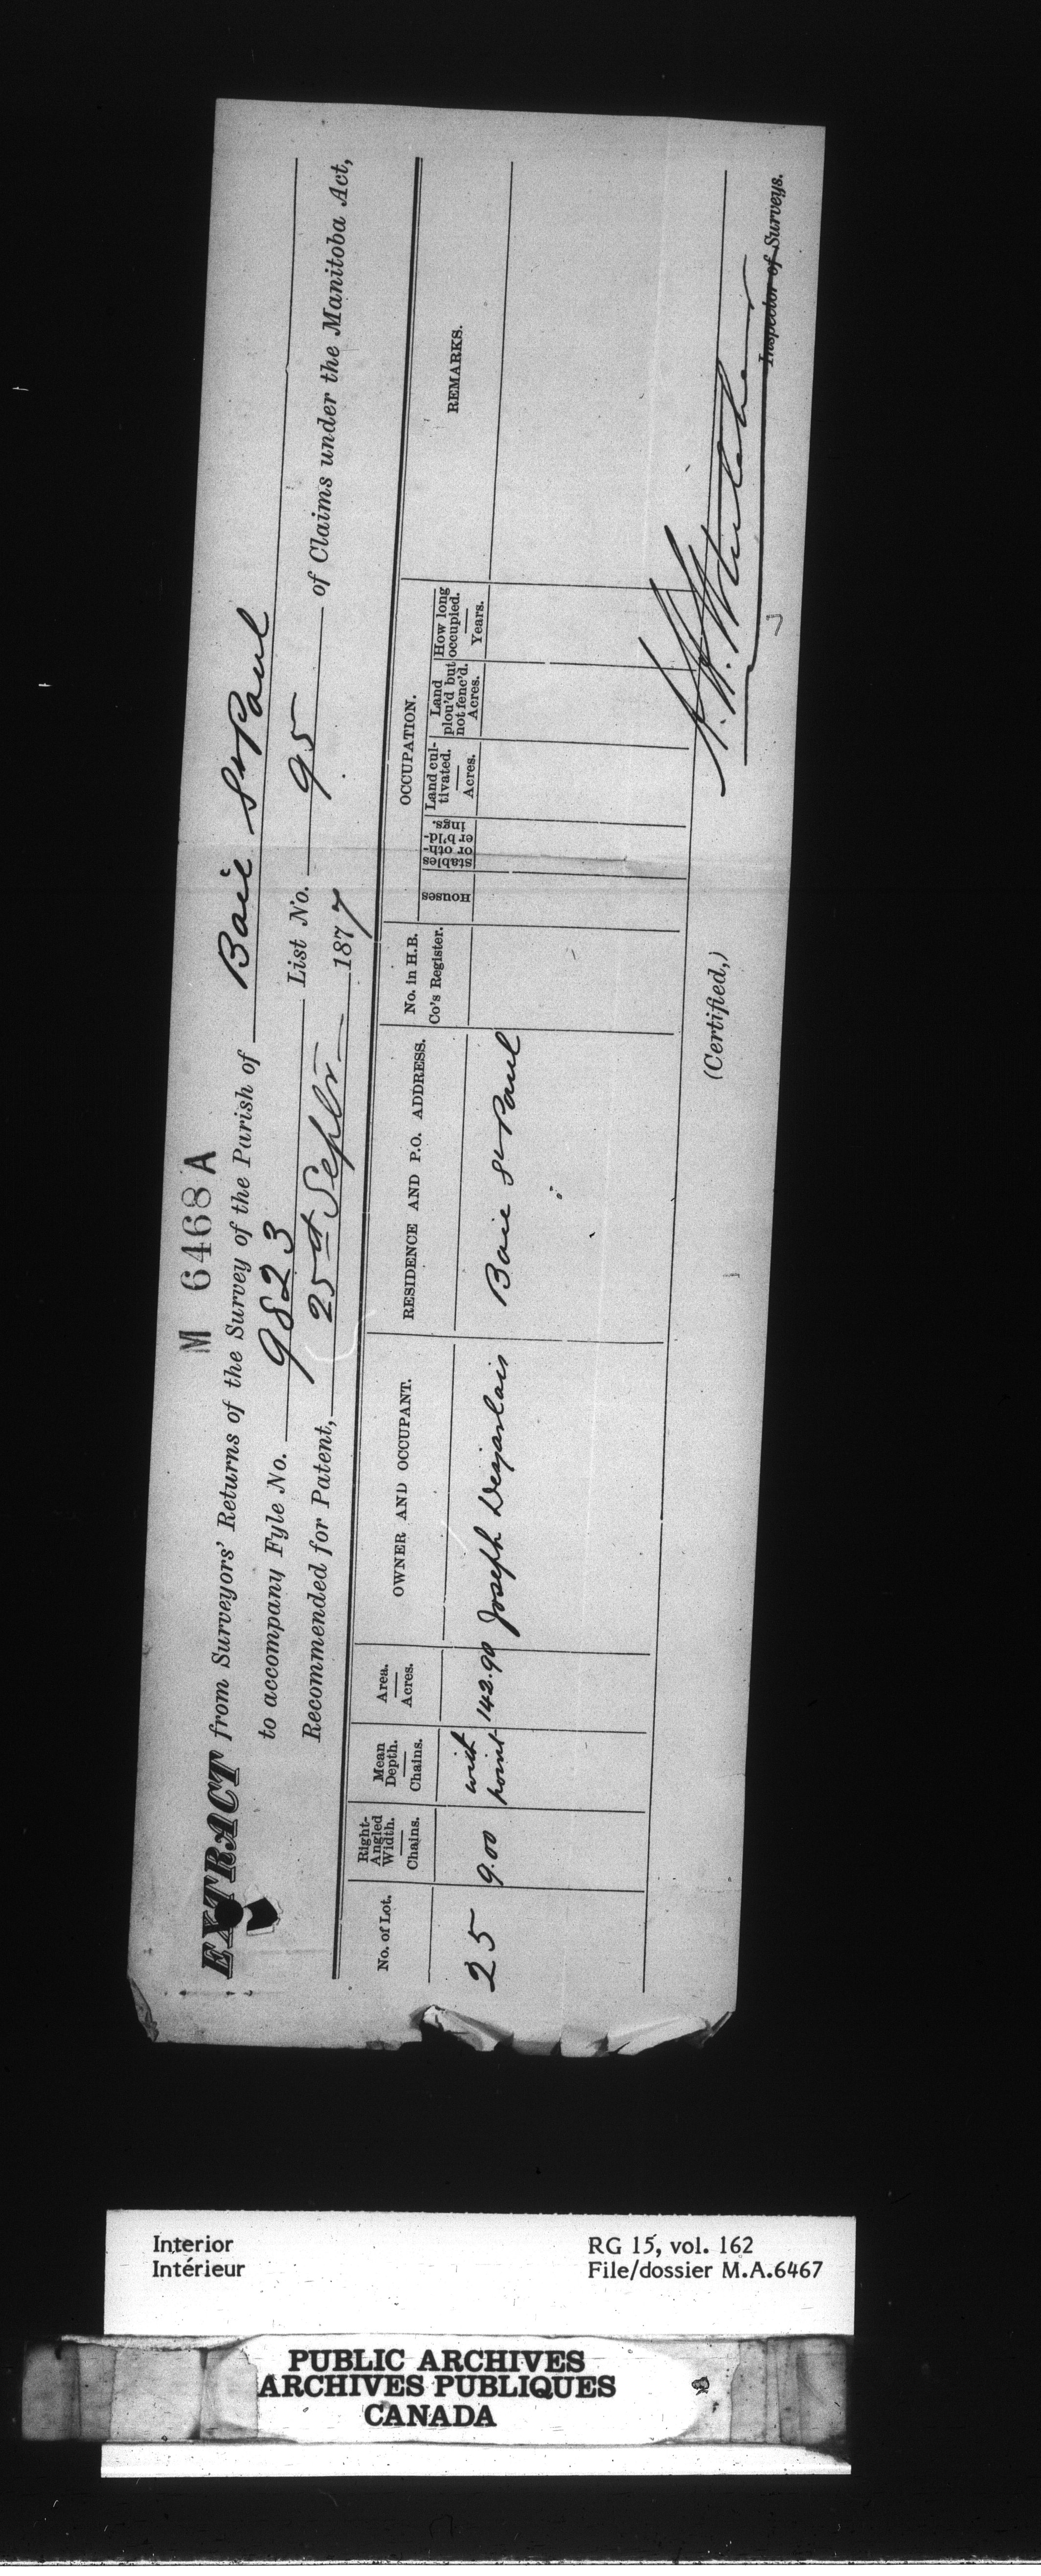 M 6468 A
EXTRACT from Surveyors' Returns of the Survey of the Parish of Baie St Paul
to accompany Fyle No. 9823 List No. 95 of Claims under the Manitoba Act,
Recommended for Patent, 25th Septbr 1877
No. of Lot.
Right-Angled Width. Chains.
Mean Depth. Chains.
Area. Acres.
OWNER AND OCCUPANT.
RESIDENCE AND P.O. ADDRESS.
No. in H.B. Co's Register.
OCCUPATION.
Houses
stables or oth-er b'ld-ings.
Land cul-tivated. Acres.
Land plou'd but not fenc'd. Acres.
How long occupied. Years.
REMARKS.
25 9.00 with point 142.90 Joseph Desjarlais Baie St Paul
(Certified,)
Inspector of Surveys.
7
Interior
Intérieur
RG 15, vol. 162
File/dossier M.A.6467
PUBLIC ARCHIVES
ARCHIVES PUBLIQUES
CANADA